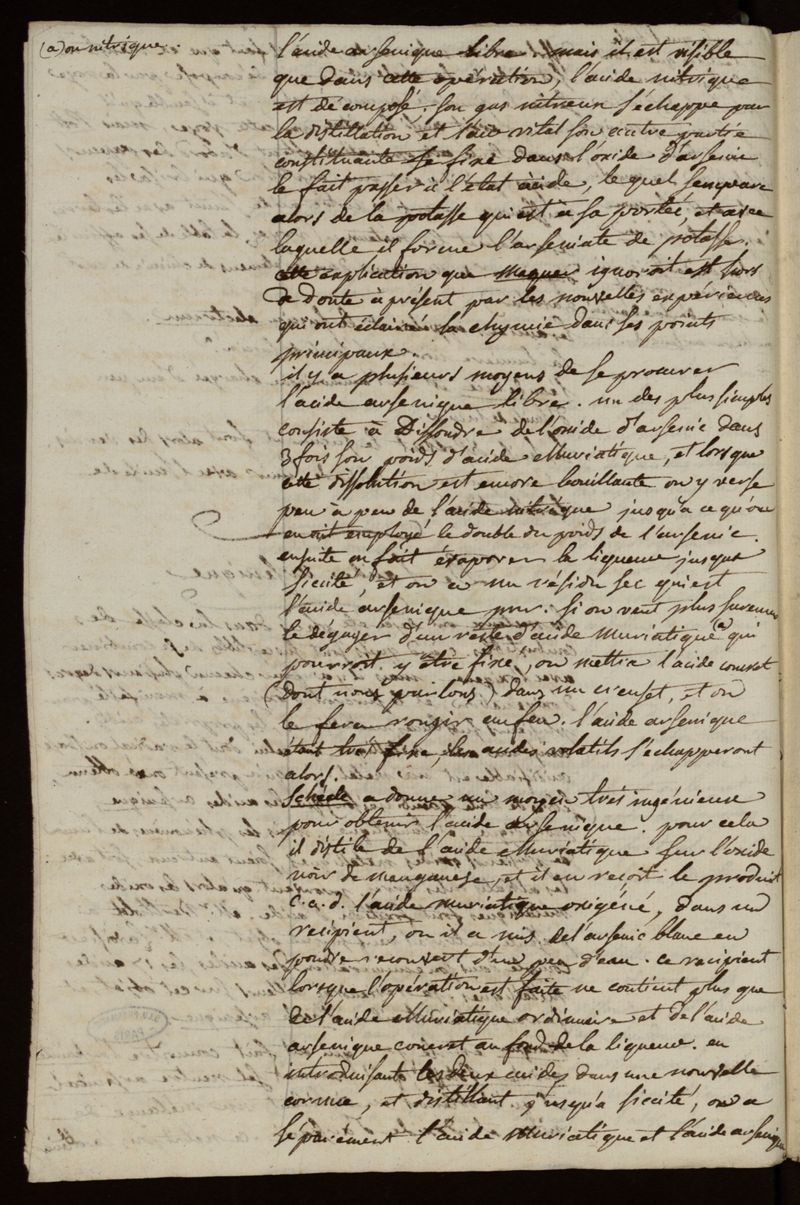 (a) ou nitrique.
l'acide arsenique libre. mais il est visible
que dans cette opération, l'acide nitrique
est décomposé. son gas nitreux s'échappe par
la distillation et l'air vital son autre partie
constituante se fixe dans l'oxide d'arsenic
le fait passer à l'état acide, le quel s'empare
alors de la potasse qui est à sa portée, et avec
laquelle il forme l'arseniate de potasse.
cette explication que Maquer ignoroit est hors
de doute à présent par les nouvelles expériences
qui ont éclairé la chymie dans ses points
principaux.
il y a plusieurs moyens de se procurer
l'acide arsenique libre. un des plus simples
consiste à Dissoudre de l'oxide d'arsenic dans
3 fois son poids d'acide Muriatique, et lorsque
cette dissolution est encore bouillante on y verse
peu a peu de l'acide nitrique jusqu'a ce qu'on
en ait employé le double du poids de l'arsenic.
ensuite on fait évaporer la liqueur jusqua
siccité, et on a un résidu sec qui est
l'acide arsenique pur. si on veut plus surement
le dégager d'un reste d'acide Muriatique (a) qui
pourroit y être fixé, on mettra l'acide concret
(dont nous parlons) dans un creuset, et on
le fera rougir au feu. l'acide arsenique
étant très fixe, les acides volatils s'échapperont
alors.
Schéele a donné un moyen très ingénieux
pour obtenir l'acide arsenique. pour cela
il distile de l'acide Muriatique sur l'oxide
noir de Manganese, et il en reçoit le produit
c.a.d. l'acide muriatique oxigéné, dans un
recipient, ou il a mis de l'arsenic blanc en
poudre recouvert d'un peu d'eau. ce recipient
lorsque l'opération est faite ne contient plus que
de l'acide Muriatique ordinaire et de l'acide
arsenique concret au fond de la liqueur. en
introduisant les deux acides dans une nouvelle
cornue, et distillant jusqu'a siccité, on a
séparément l'acide Muriatique et l'acide arsenique